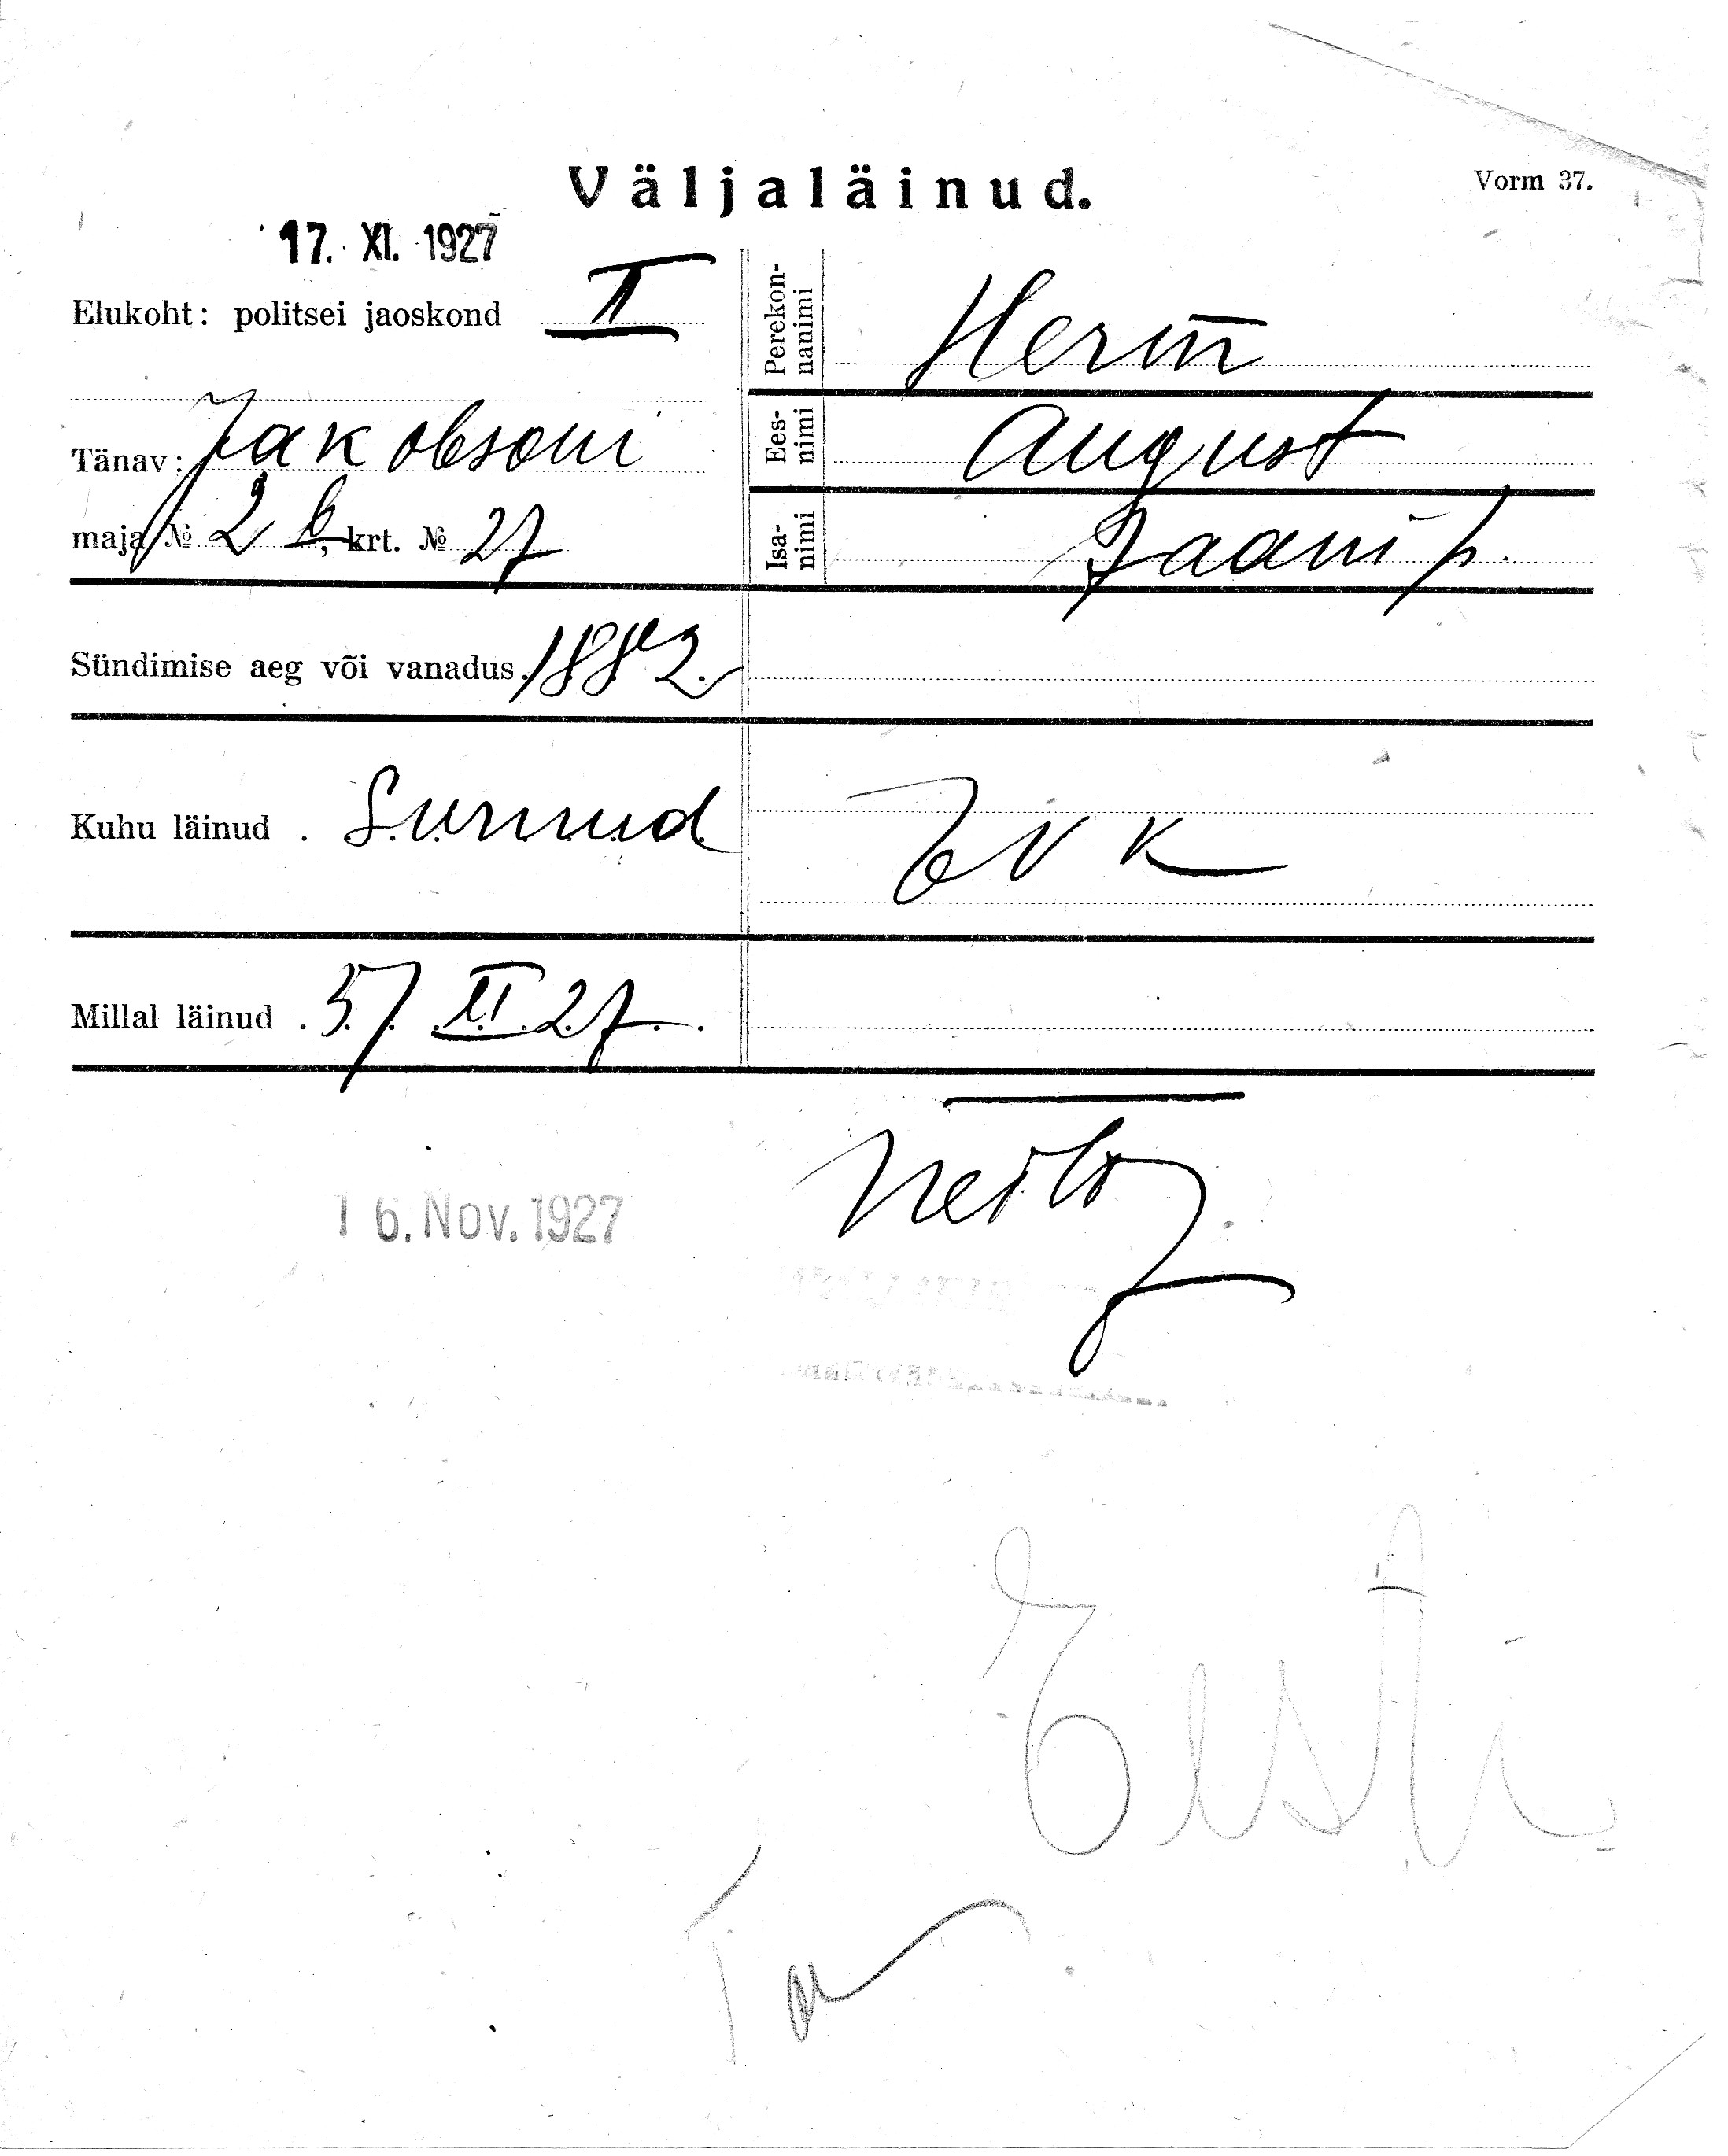 Väljaläinud.
Vorm 37.
17. XI. 1927
Elukoht: politsei jaoskond II
Perekon-
nanimi
Herm̄
Tänav: Jakobsoni
Ees-
nimi
August
maja № 2 b, krt. № 27
Isa-
nimi
Jaani p.
Sündimise aeg või vanadus. 1882.
Kuhu läinud . Surnud
Millal läinud . 5/XI 27.
16. Nov. 1927
Eesti